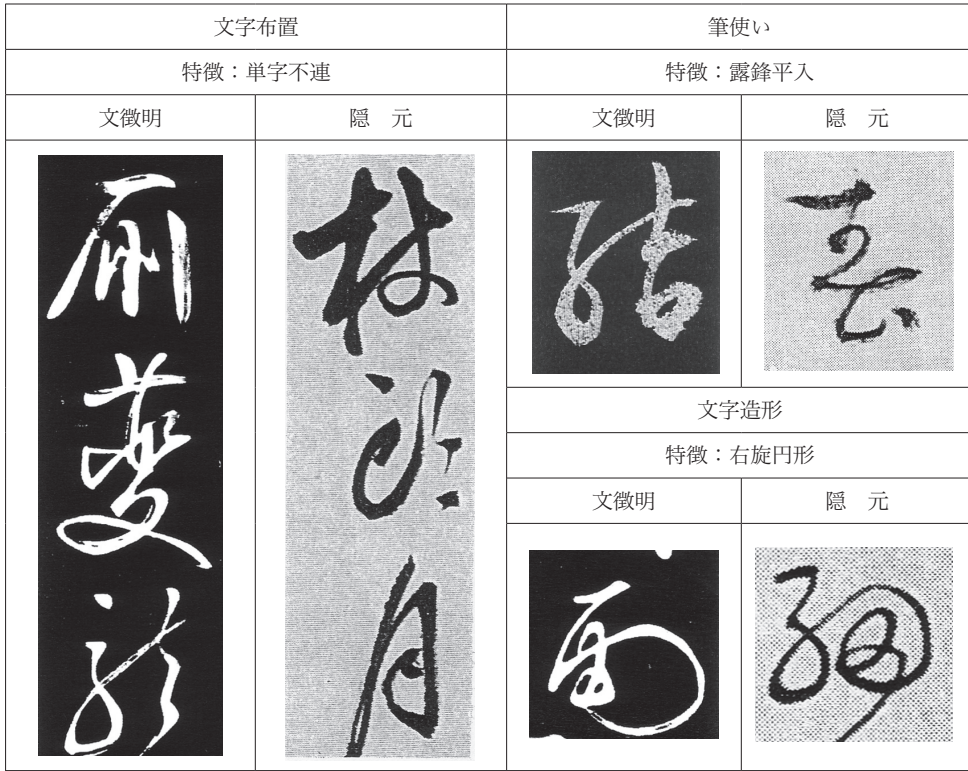 文字布置
筆使い
特徴：単字不連
特徴：露鋒平入
文徴明
隠　元
文徴明
隠　元
結
春
文字造形
特徴：右旋円形
文徴明
隠　元
月